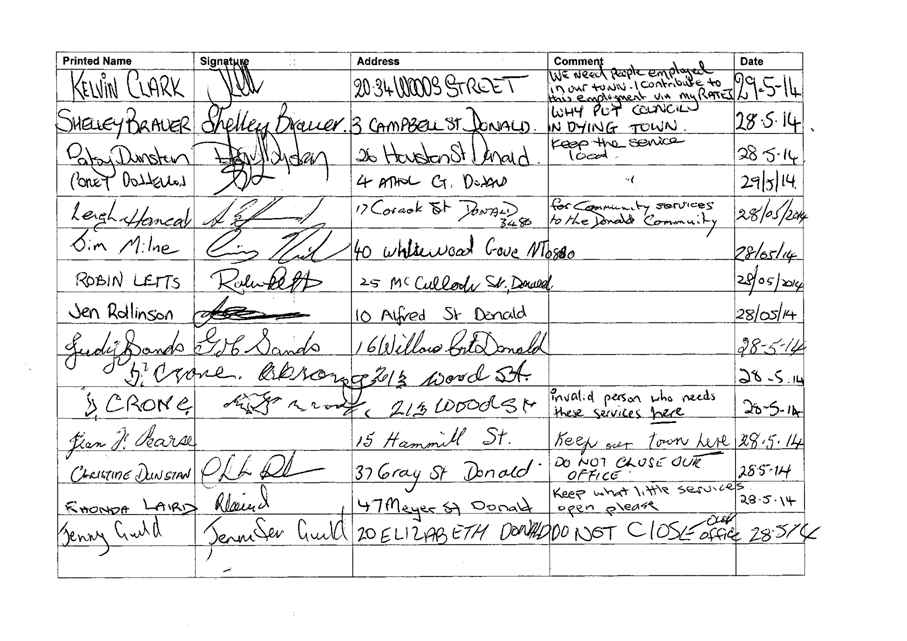 Printed Name Signature Address Comment Date
KELVIN CLARK 20-34 WOODS STREET We need people employed in our town. I contribute to this employment via my RATES 29-5-14
SHELLEY BRAUER Shelley Brauer 3 CAMPBELL ST DONALD. WHY PUT COUNCIL IN DYING TOWN. 28.5.14
Patsy Dunstan 26 Houston St Donald. Keep the service local. 28.5.14
4 ATHOL 29/5/14
Leigh 17 Corack St DONALD 3480 for Community services to the Donald Community 28/05/2014
Jim Milne 40 Whitewood Gove NT0880 28/05/14
ROBIN LETTS 25 McCulloch St, Donald 28/05/2014
Jen Rollinson 10 Alfred St Donald 28/05/14
Judy Sands Sands 16 Willow Crt Donald 28-5-14
Crone. Wood St. 28.5.14
CRONE 2/3 WOOD St invalid person who needs these services here 28-5-14
Jean Pearse 15 Hammill St. Keep our town here 28.5.14
CHRISTINE DUNSTAN 37 Gray St Donald DO NOT CLOSE OUR OFFICE. 28.5-14
RHONDA LAIRD RLaird 47 Meyer St Donald Keep what little services open please 28.5.14
Jenny Guild Jennifer Guild 20 ELIZABETH DONALD DO NOT CLOSE OUR office 28-5/4